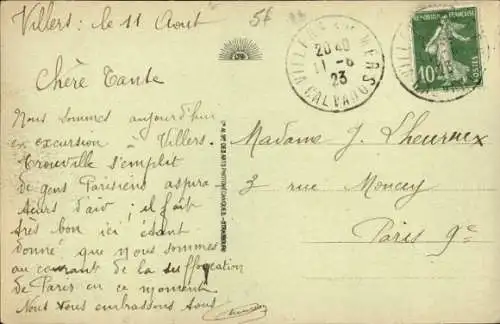 Villers : le 11 Août
Chère Tante
Nous sommes aujourd'hui
en excursion à Villers.
Trouville s'emplit
de gens Parisiens aspira
teurs d'air ; il fait
très bon ici étant
donné que nous sommes
au courant de la suffocation
de Paris en ce moment
Nous vous embrassons tous
VILLERS SUR MER
20 40
11 - 8
23
CALVADOS
REPUBLIQUE FRANÇAISE
10c
POSTES
Madame J. Lheureux
3 rue Moncey
Paris 9e